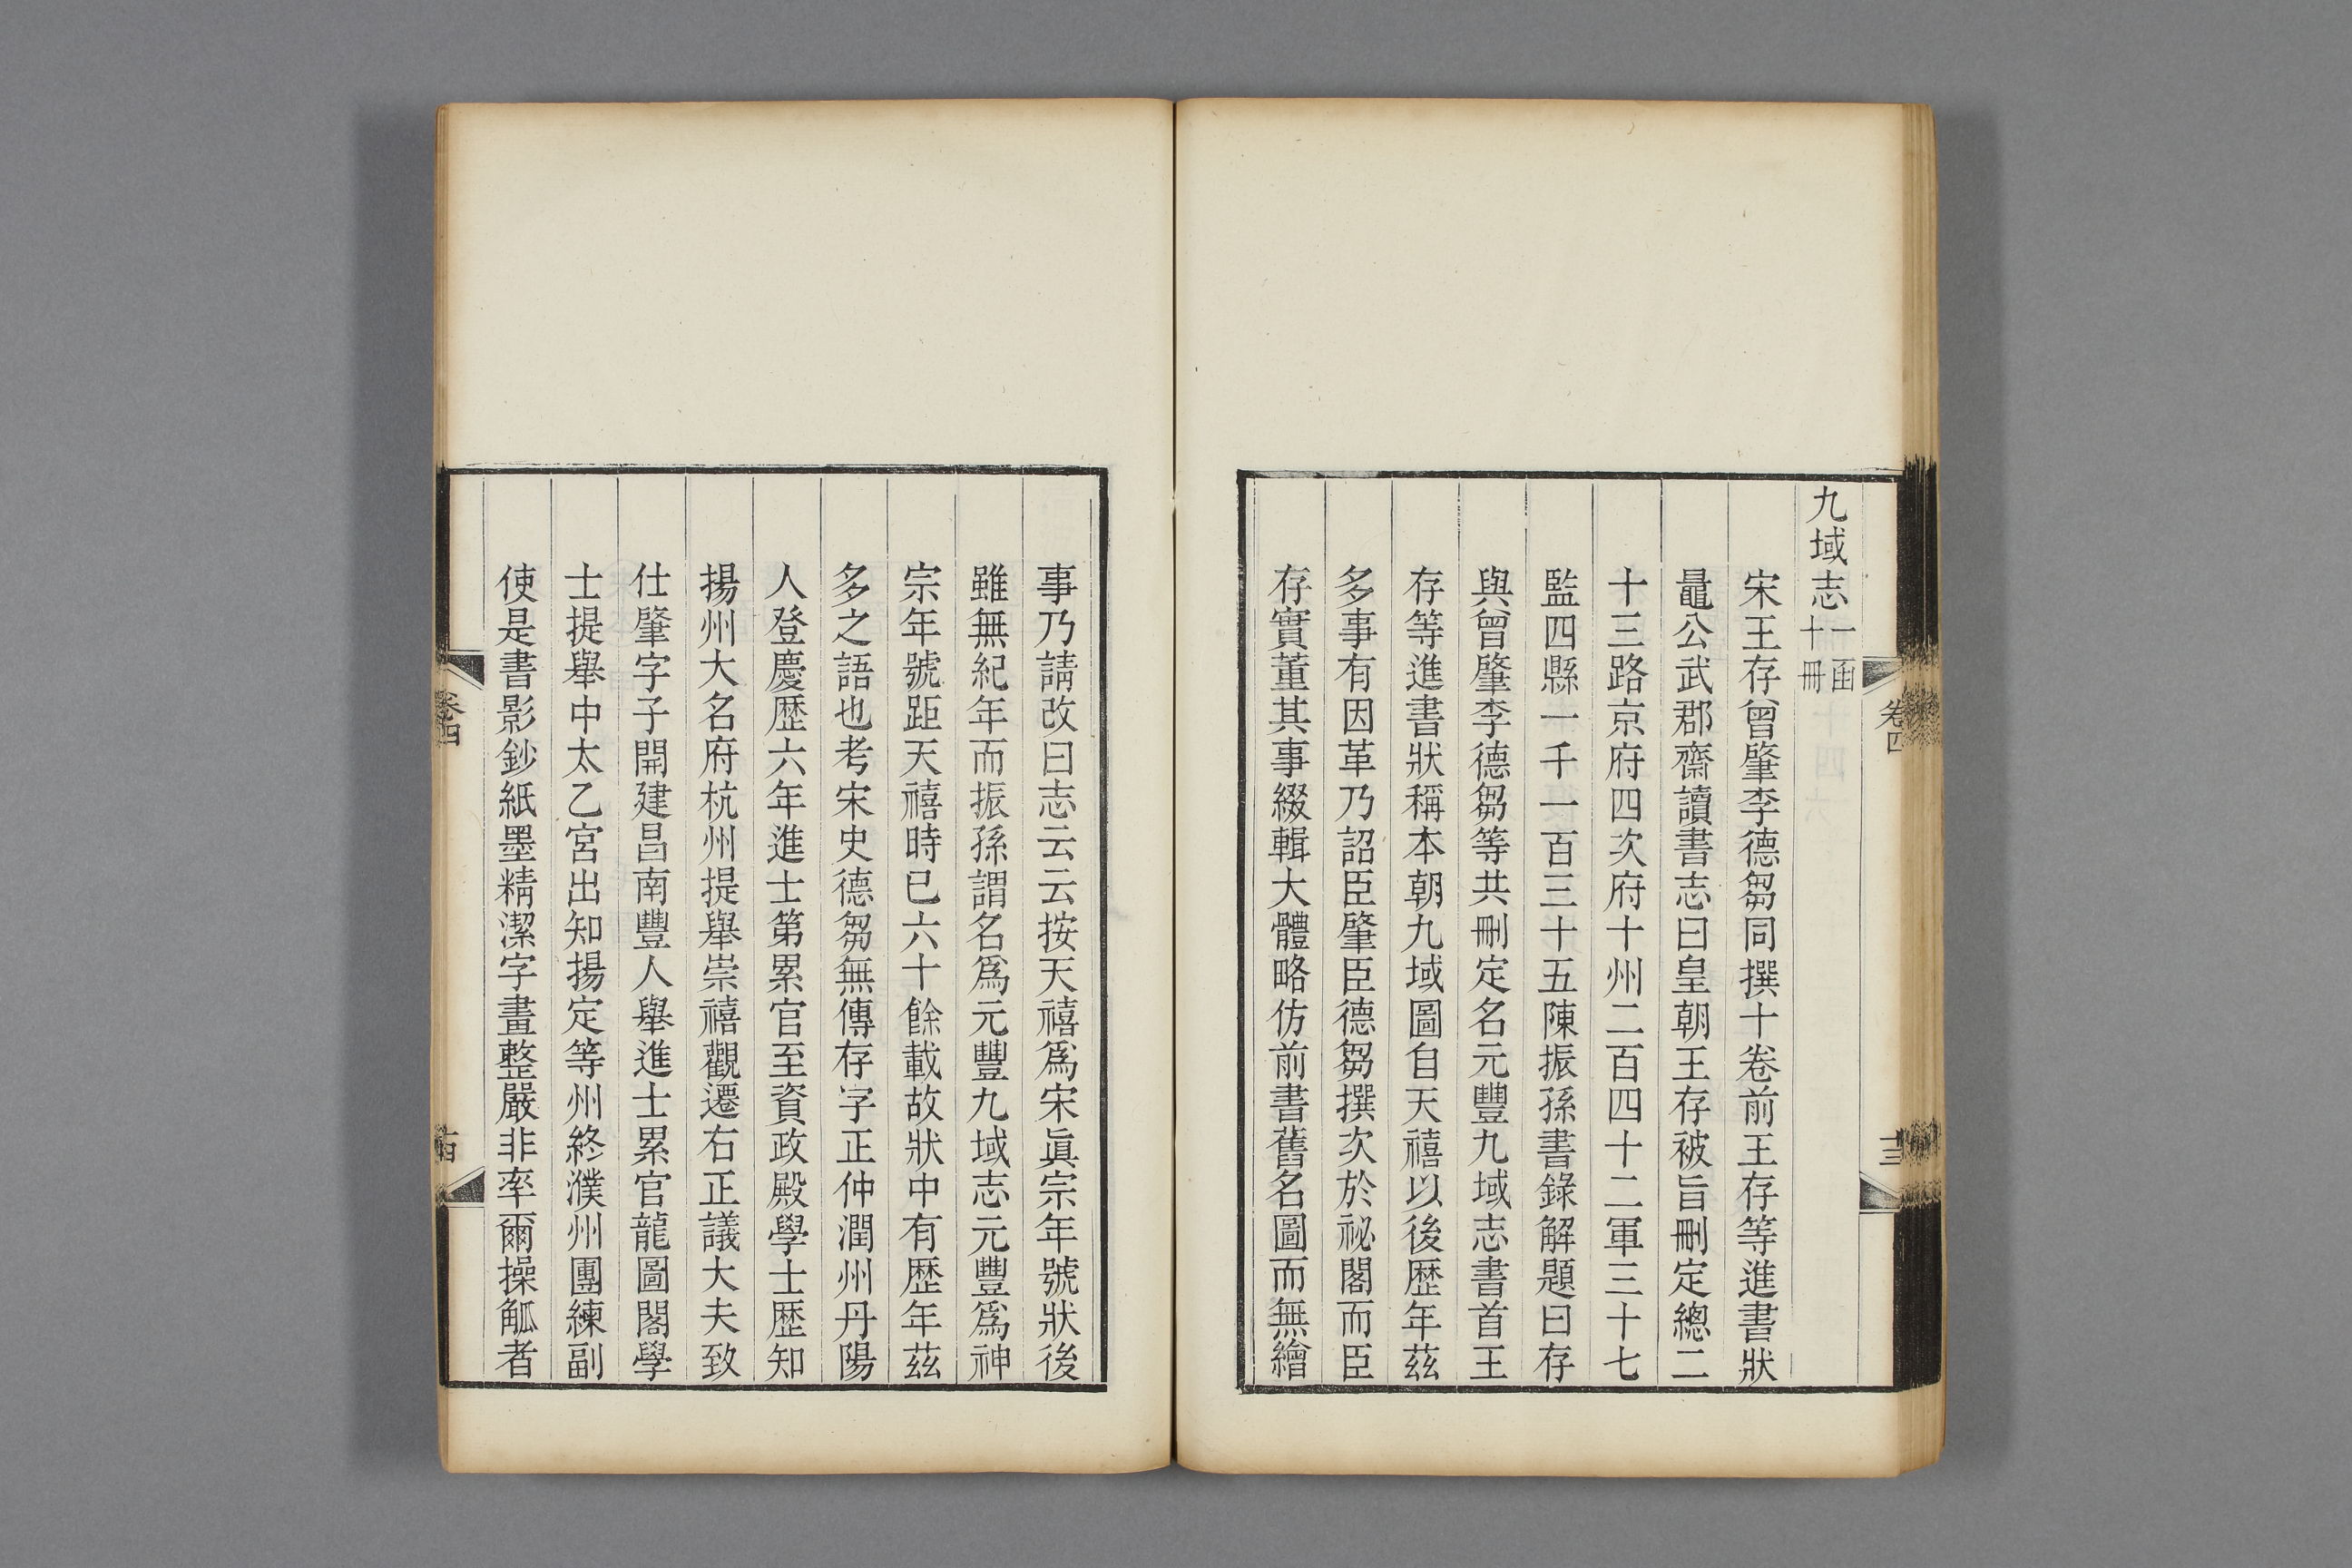 九域志一函十冊
宋王存曾肇李德芻同撰十卷前王存等進書狀
鼂公武郡齋讀書志曰皇朝王存被旨刪定總二
十三路京府四次府十州二百四十二軍三十七
監四縣一千一百三十五陳振孫書錄解題曰存
與曾肇李德芻等共刪定名元豐九域志書首王
存等進書狀稱本朝九域圖自天禧以後歴年茲
多事有因革乃詔臣肇臣德芻撰次於祕閣而臣
存實董其事綴輯大體略仿前書舊名圖而無繪
卷四
十三
事乃請改曰志云云按天禧爲宋眞宗年號狀後
雖無紀年而振孫謂名爲元豐九域志元豐爲神
宗年號距天禧時已六十餘載故狀中有歴年茲
多之語也考宋史德芻無傳存字正仲潤州丹陽
人登慶歴六年進士第累官至資政殿學士歴知
揚州大名府杭州提舉崇禧觀遷右正議大夫致
仕肇字子開建昌南豐人舉進士累官龍圖閣學
士提舉中太乙宮出知揚定等州終濮州團練副
使是書影鈔紙墨精潔字畫整嚴非率爾操觚者
卷四